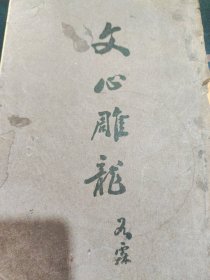 文心雕龍